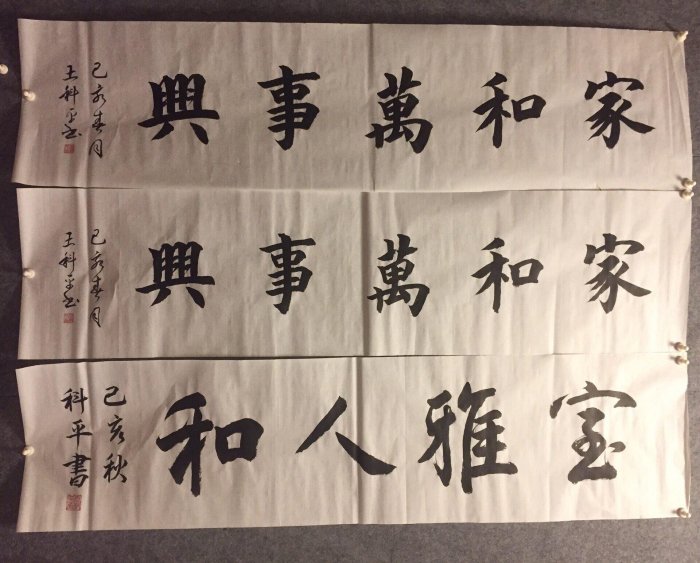 家和萬事興
己亥春月
王科平书
家和萬事興
己亥春月
王科平书
室雅人和
己亥秋
科平書